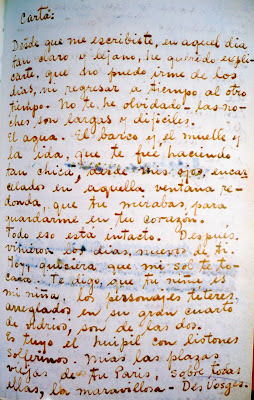 Carta:
Desde que me escribiste, en aquel día
tan claro y lejano, he querido expli-
carte, que no puedo irme de los
días, ni regresar a tiempo al otro
tiempo. No te he olvidado - las no-
ches son largas y difíciles.
El agua. El barco y el muelle y
la ida, que te fué haciendo
tan chica, desde mis ojos, encar-
celados en aquella ventana re-
donda, que tu mirabas para
guardarme en tu corazón.
Todo eso está intacto. Después,
vinieron los días, nuevos de ti.
Hoy, quisiera que mi sol te to-
cara. Te digo, que tu niña es
mi niña, los personajes títeres,
arreglados en su gran cuarto
de vidrios, son de las dos.
Es tuyo el huipil con listones
solferinos. Mias las plazas
viejas de tu Paris. Sobre todas
ellas, la maravillosa - Des Vosges.